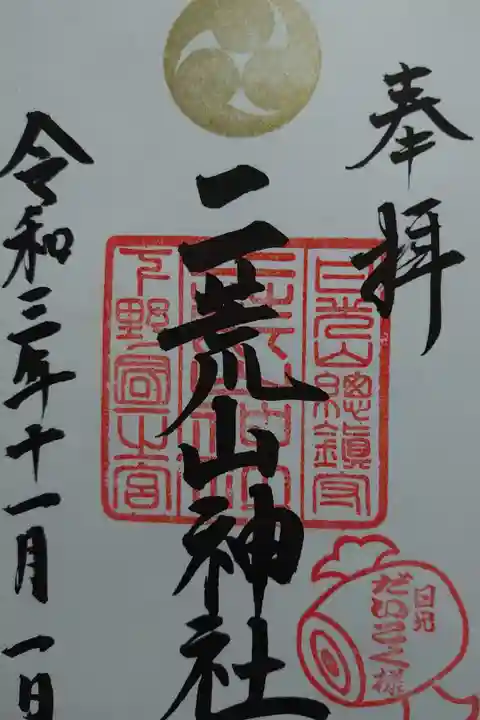 奉拝
日光山總鎮守
二荒山神社
下野國一之宮
令和三年十一月一日
日光
だいこく様